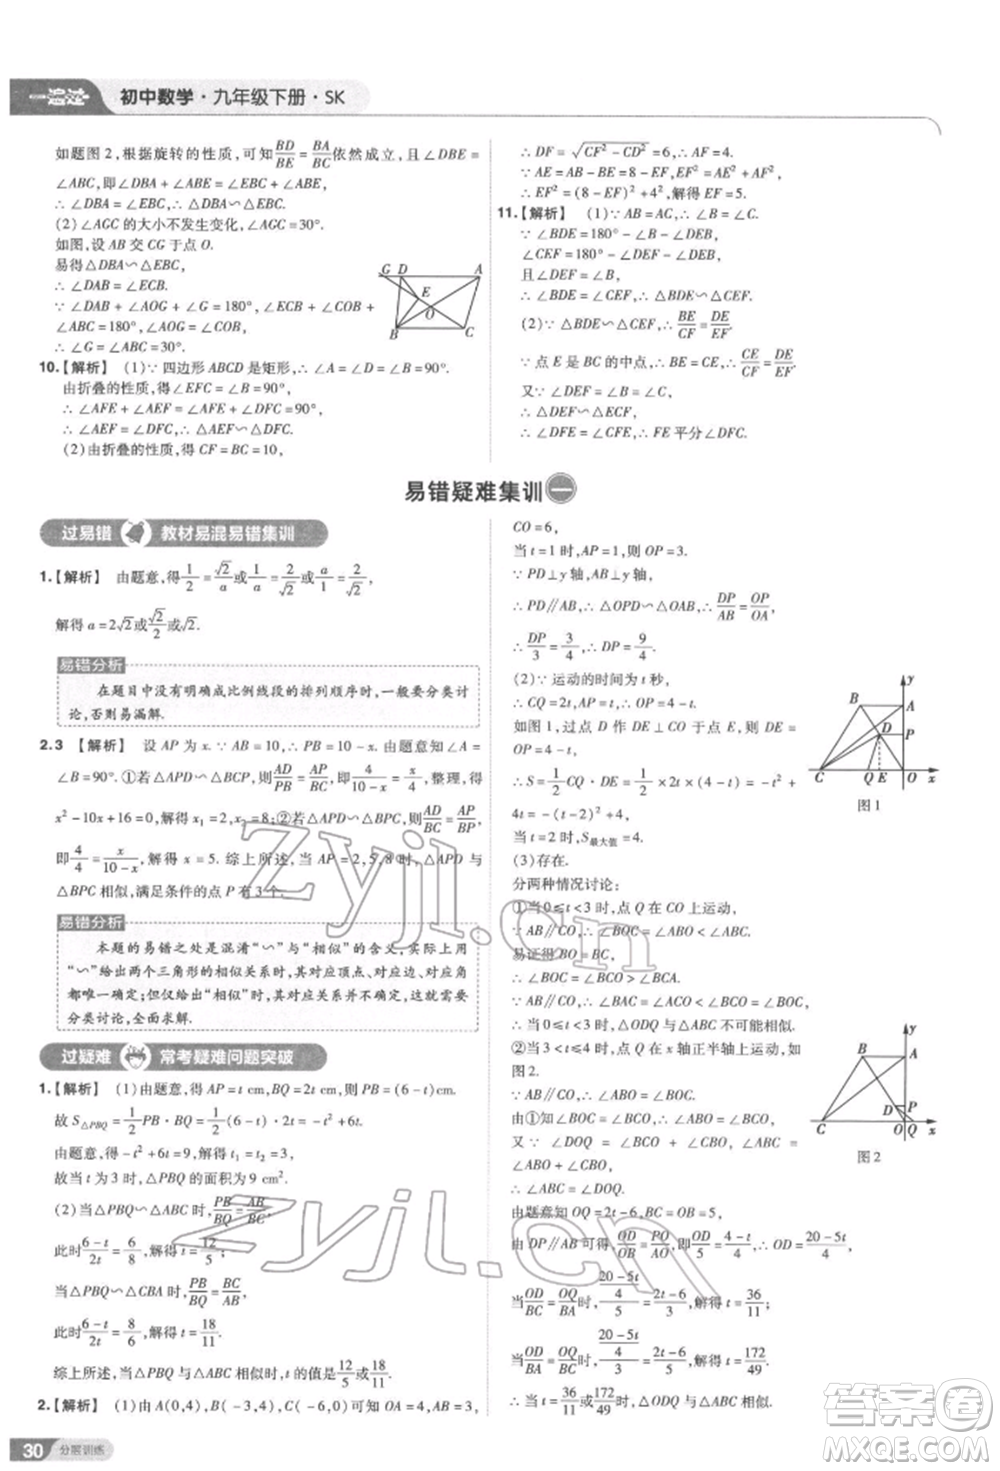 一遍过 初中数学·九年级下册·SK
如题图2,根据旋转的性质,可知BD/BE=BA/BC依然成立,且∠DBE=
∠ABC,即∠DBA+∠ABE=∠EBC+∠ABE,
∴∠DBA=∠EBC,∴△DBA∽△EBC.
(2)∠AGC的大小不发生变化,∠AGC=30°.
如图,设AB交CG于点O.
易得△DBA∽△EBC,
∴∠DAB=∠ECB.
∵∠DAB+∠AOG+∠G=180°,∠ECB+∠COB+
∠ABC=180°,∠AOG=∠COB,
∴∠G=∠ABC=30°.
G D A
E
O
B C
10.【解析】 (1)∵四边形ABCD是矩形,∴∠A=∠D=90°.
由折叠的性质,得∠EFC=∠B=90°,
∴∠AFE+∠AEF=∠AFE+∠DFC=90°,
∴∠AEF=∠DFC,∴△AEF∽△DFC.
(2)由折叠的性质,得CF=BC=10,
∴DF=√(CF²-CD²)=6,∴AF=4.
∵AE=AB-BE=8-EF,EF²=AE²+AF²,
∴EF²=(8-EF)²+4²,解得EF=5.
11.【解析】 (1)∵AB=AC,∴∠B=∠C.
∵∠BDE=180°-∠B-∠DEB,
∠CEF=180°-∠DEF-∠DEB,
且∠DEF=∠B,
∴∠BDE=∠CEF,∴△BDE∽△CEF.
(2)∵△BDE∽△CEF,∴BE/CF=DE/EF.
∵点E是BC的中点,∴BE=CE,∴CE/CF=DE/EF.
又∵∠DEF=∠B=∠C,
∴△DEF∽△ECF,
∴∠DFE=∠CFE,∴FE平分∠DFC.
易错疑难集训 一
过易错 教材易混易错集训
1.【解析】 由题意,得1/2=√2/a或1/a=√2/2或1/a=2/√2或a/1=2/√2,
解得a=2√2或√2/2或√2.
易错分析
在题目中没有明确成比例线段的排列顺序时,一般要分类讨
论,否则易漏解.
2.3 【解析】 设AP为x.∵AB=10,∴PB=10-x.由题意知∠A=
∠B=90°.①若△APD∽△BCP,则AD/PB=AP/BC,即4/(10-x)=x/4,整理,得
x²-10x+16=0,解得x₁=2,x₂=8;②若△APD∽△BPC,则AD/BC=AP/BP,
即4/4=x/(10-x),解得x=5.综上所述,当AP=2,5,8时,△APD与
△BPC相似,满足条件的点P有3个.
易错分析
本题的易错之处是混淆“∽”与“相似”的含义,实际上用
“∽”给出两个三角形的相似关系时,其对应顶点、对应边、对应
角都唯一确定;但仅给出“相似”时,其对应关系不确定,需要
分类讨论,全面求解.
过疑难 常考疑难问题突破
1.【解析】 (1)由题意,得AP=t cm,BQ=2t cm,则PB=(6-t)cm.
故S△PBQ=1/2PB·BQ=1/2(6-t)·2t=-t²+6t.
由题意,得-t²+6t=9,解得t₁=t₂=3,
故当t为3时,△PBQ的面积为9 cm².
(2)当△PBQ∽△ABC时,PB/BQ=AB/BC,
此时(6-t)/2t=6/8,解得t=12/5;
当△PBQ∽△CBA时,PB/BQ=BC/AB,
此时(6-t)/2t=8/6,解得t=18/11.
综上所述,当△PBQ与△ABC相似时,t的值是12/5或18/11.
2.【解析】 (1)由A(0,4),B(-3,4),C(-6,0),可知OA=4,AB=3,
CO=6,
当t=1时,AP=1,则OP=3.
∵PD⊥y轴,AB⊥y轴,
∴PD∥AB,∴△OPD∽△OAB,∴DP/AB=OP/OA,
∴DP/3=3/4,∴DP=9/4.
(2)∵运动的时间为t秒,
∴CQ=2t,AP=t,
如图1,过点D作DE⊥CO于点E,则DE=
OP=4-t,
∴S=1/2CQ·DE=1/2×2t×(4-t)=-t²+
4t=-(t-2)²+4,
当t=2时,S最大值=4.
(3)存在.
分两种情况讨论:
①当0≤t<3时,点Q在CO上运动,
∵AB∥CO,∴∠BOC=∠ABO<∠ABC.
易证得BO=BC,
∴∠BOC=∠BCO>∠BCA.
∵AB∥CO,∴∠BAC=∠ACO<∠BCO,
∴当0≤t<3时,△ODQ与△ABC不可能相似.
②当3<t≤4时,点Q在x轴正半轴上运动,如
图2.
∵AB∥CO,∴∠BOC=∠ABO.
由①知∠BOC=∠BCO,∴∠ABO=∠BCO
又∵∠DOQ+∠BOC=180°,∠ABC=
∠ABO+∠OBC,
∴∠ABC=∠DOQ.
由题意知OQ=2t-6,OB=5,
由DP∥AB可得,OD/OB=PO/AO,即OD/5=(4-t)/4,∴OD=(20-5t)/4,
当OD/BC=OQ/BA时,((20-5t)/4)/5=(2t-6)/3,解得t=36/11;
当OD/BA=OQ/BC时,((20-5t)/4)/3=(2t-6)/5,解得t=172/49.
∴当t=36/11或t=172/49时,△ODQ与△ABC相似.
y
B A
D P
C Q E O x
图1
y
B A
D P
C O Q x
图2
30 分层训练
zyjl.cn
zyjl.cn
答案圈
MXQE.COM